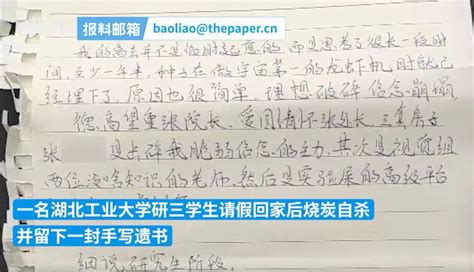 报料邮箱
baoliao@thepaper.cn
我的离去并不是临时起意的，而是思考了很长一段时
间，至少一年半，种子在微宇宙第一的龙出下机时就已
经埋下了，原因也很简单，理想破碎信念崩塌
德高望重张院长，爱国情怀张处长，三套房子
张 是击碎我脆弱信念的主力，其次是视觉组
两位没啥知识的老师，然后是实验屋的高级平台
一名湖北工业大学研三学生请假回家后烧炭自杀
并留下一封手写遗书
细说，研究生阶段，